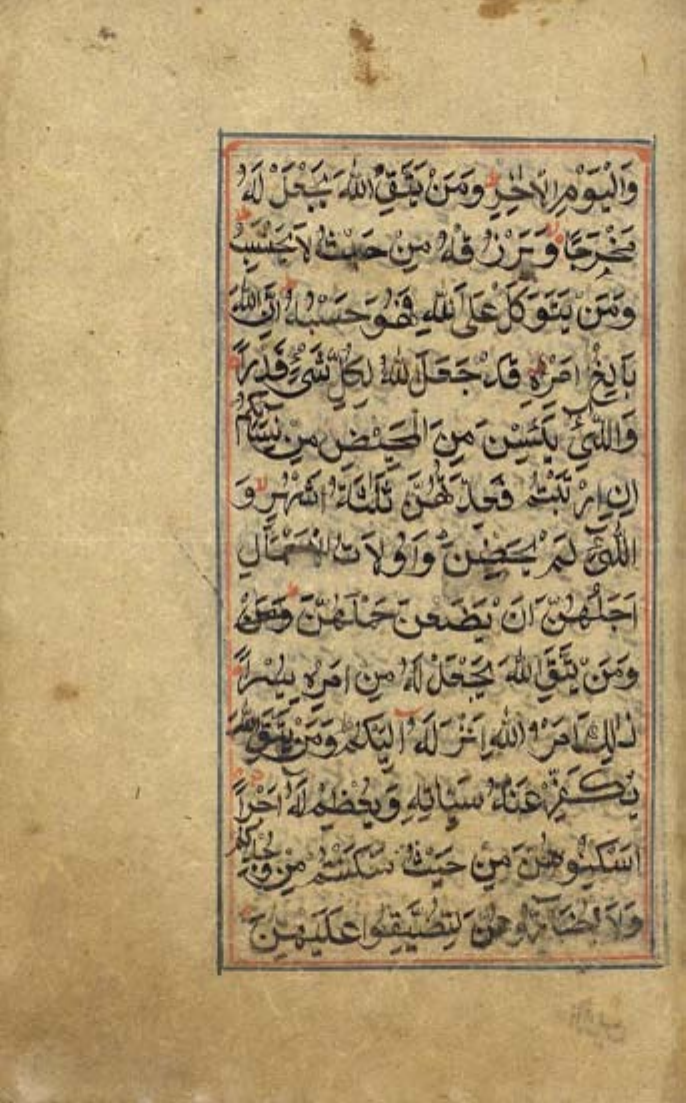 وَالْيَوْمِ الْاٰخِرِ وَمَنْ يَتَّقِ اللّٰهَ يَجْعَلْ لَهُ
مَخْرَجًا وَيَرْزُقْهُ مِنْ حَيْثُ لَا يَحْتَسِبُ
وَمَنْ يَتَوَكَّلْ عَلَى اللّٰهِ فَهُوَ حَسْبُهُ اِنَّ اللّٰهَ
بَالِغُ اَمْرِهِ قَدْ جَعَلَ اللّٰهُ لِكُلِّ شَيْءٍ قَدْرًا
وَاللّٰٓئِ يَئِسْنَ مِنَ الْمَحِيْضِ مِنْ نِسَآئِكُمْ
اِنِ ارْتَبْتُمْ فَعِدَّتُهُنَّ ثَلٰثَةُ اَشْهُرٍ وَ
اللّٰٓئِ لَمْ يَحِضْنَ وَاُولَاتُ الْاَحْمَالِ
اَجَلُهُنَّ اَنْ يَضَعْنَ حَمْلَهُنَّ
وَمَنْ يَتَّقِ اللّٰهَ يَجْعَلْ لَهُ مِنْ اَمْرِهِ يُسْرًا
ذٰلِكَ اَمْرُ اللّٰهِ اَنْزَلَهُ اِلَيْكُمْ وَمَنْ يَتَّقِ اللّٰهَ
يُكَفِّرْ عَنْهُ سَيِّاٰتِهِ وَيُعْظِمْ لَهُ اَجْرًا
اَسْكِنُوْهُنَّ مِنْ حَيْثُ سَكَنْتُمْ مِنْ وُجْدِكُمْ
وَلَا تُضَآرُّوْهُنَّ لِتُضَيِّقُوْا عَلَيْهِنَّ